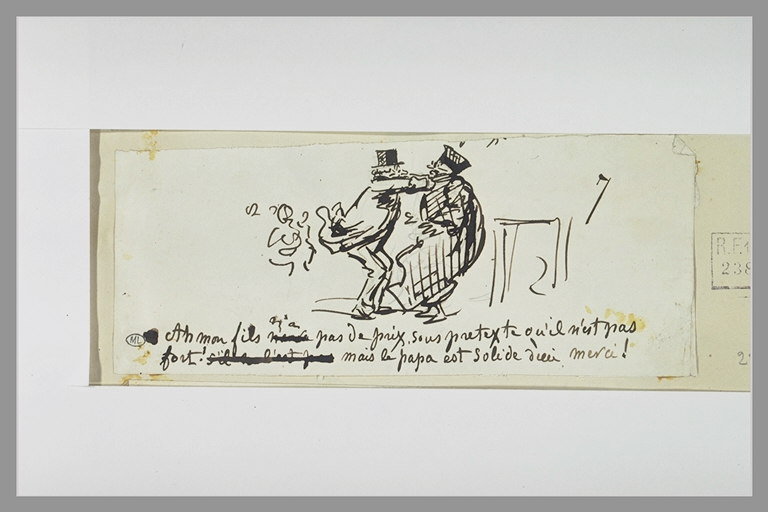 7
R.F.
238
ML
Ah mon fils n'a pas de prix, sous pretexte qu'il n'est pas
fort! s'il n l'est pas mais le papa est solide dieu merci!
2